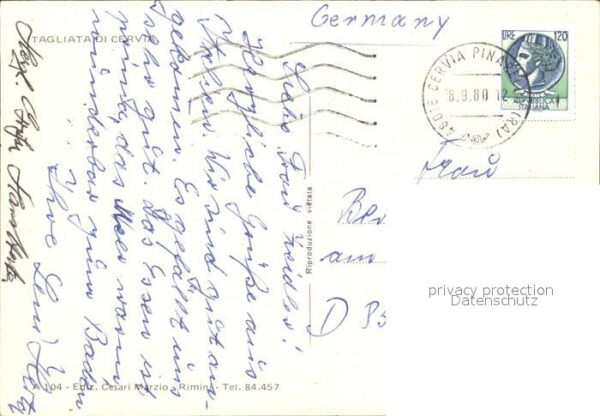 TAGLIATA DI CERVIA
Germany
LIRE 120
REPUBBLICA
ITALIANA
48016 CERVIA PINA (RA)
8.9.80 12
Liebe Frau
Herzliche Grüße aus
Italien. Wir sind gut an-
gekommen. Es gefällt uns
sehr gut. Das Essen ist
prima, das Meer warm
wunderbar zum Baden.
Ihre
Frau
Be
am
D 85
Riproduzione vietata
A 104 - Ediz. Cesari Marzio - Rimini - Tel. 84.457
privacy protection
Datenschutz